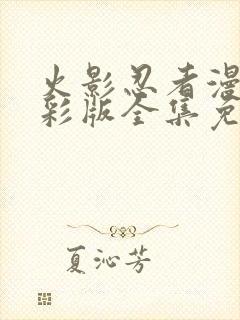 火影忍者漫
彩版全集免
夏沁芳